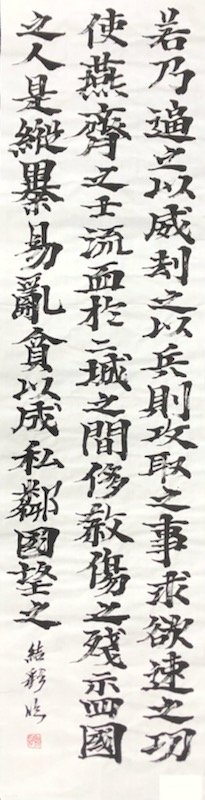 若乃逼之以威刧之以兵則攻取之事求欲速之功
使燕齊之士流血於二城之間侈殺傷之殘示四國
之人是縱暴易亂貪以成私鄰國望之
結彩臨